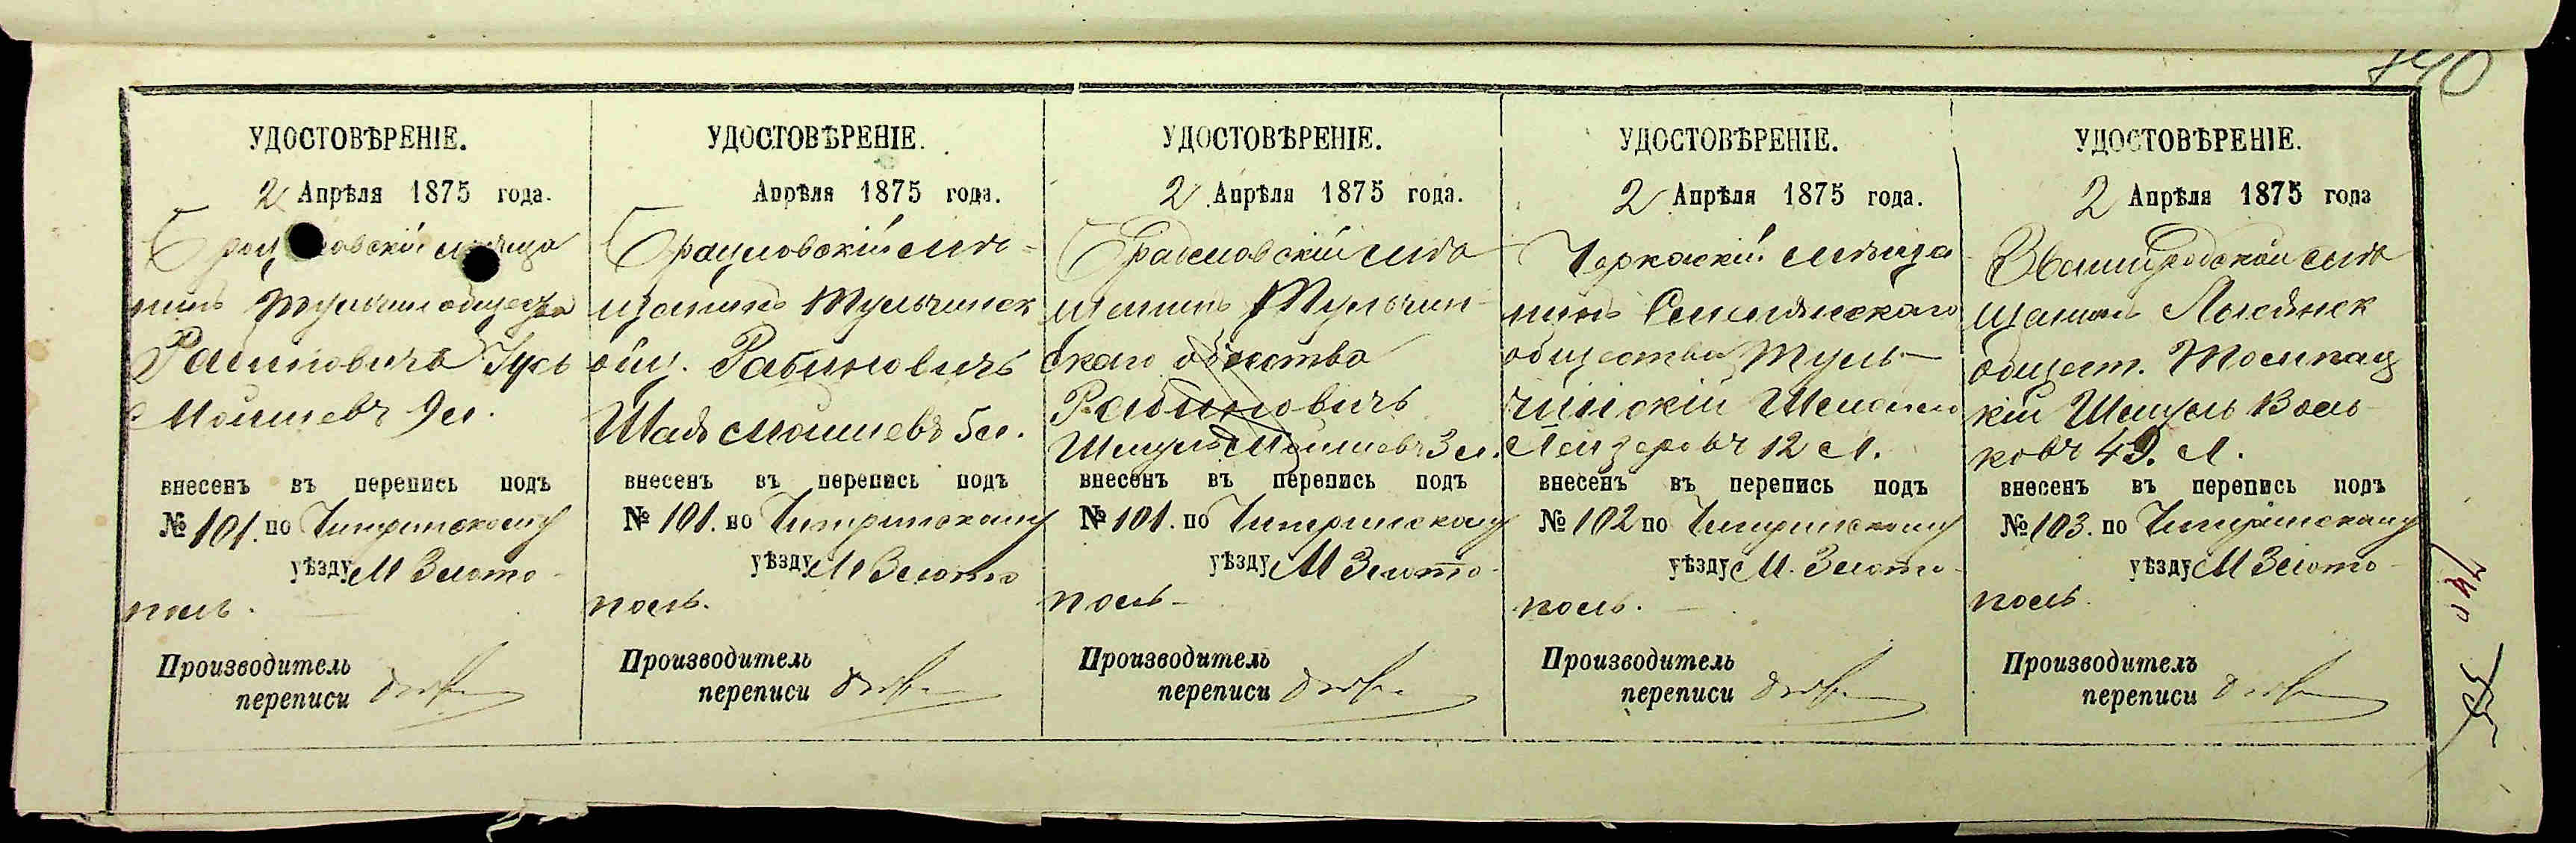 140
УДОСТОВѢРЕНІЕ.
2 Апрѣля 1875 года.
мѣща
нинъ Тульчин общества
Рабиновичъ Гусь
Мошиевъ 9 л.
внесенъ въ перепись подъ
№ 101. по Чигиринскому
уѣзду М Злото-
поль.
Производитель
переписи
УДОСТОВѢРЕНІЕ.
Апрѣля 1875 года.
Брацловскій мѣ-
щанинъ Тульчинск
общ. Рабиновичъ
Мошиевъ 5 л.
внесенъ въ перепись подъ
№ 101. по Чигиринскому
уѣзду М Злото
поль.
Производитель
переписи
УДОСТОВѢРЕНІЕ.
2 Апрѣля 1875 года.
Брацловскій мѣ
щанинъ Тульчин-
скаго общества
Рабиновичъ
Шмуль Мошиевъ 3 л.
внесенъ въ перепись подъ
№ 101. по Чигиринскому
уѣзду М Злото-
поль-
Производитель
переписи
УДОСТОВѢРЕНІЕ.
2 Апрѣля 1875 года.
Черкаскій мѣща-
нинъ Смелянскаго
общества Туль-
чинскій
Лейзеровъ 12 л.
внесенъ въ перепись подъ
№ 102 по Чигиринскому
уѣзду М. Злото-
поль.
Производитель
переписи
УДОСТОВѢРЕНІЕ.
2 Апрѣля 1875 года
Звенигродскій мѣ
щанинъ Лысянск
общест.
кій Шмуль Воль-
ковъ 49. л.
внесенъ въ перепись подъ
№ 103. по Чигиринскому
уѣзду М Злото-
поль.
Производитель
переписи